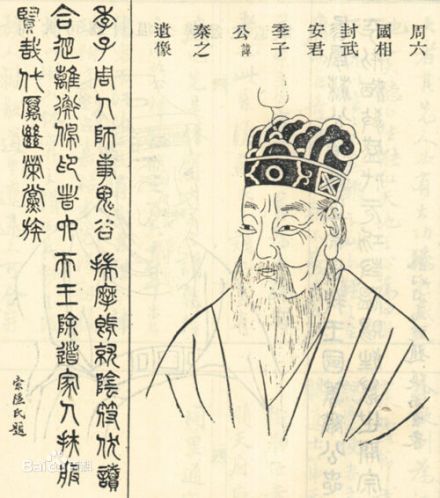 周六
國相
封武
安君
季子
公諱
秦之
遺像
季子周人師事鬼谷揣摩既就陰符伏讀
合從離衡佩印者六天王除道家人扶服
賢哉代厲繼榮黨族
索隱氏題
Baidu百科